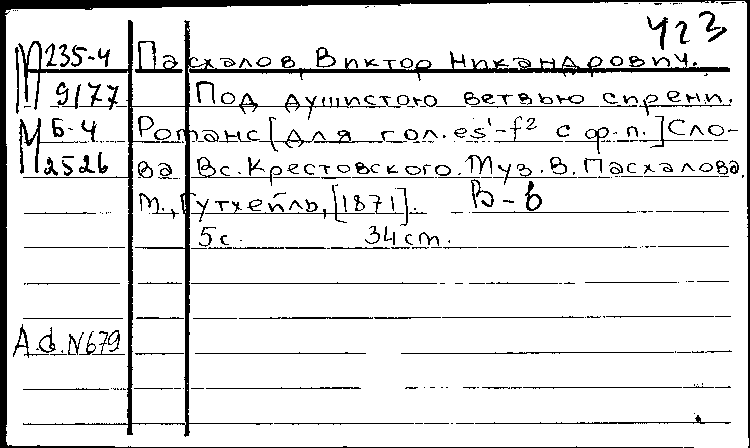 423
М 235-4 Пасхалов, Виктор Никандрович.
9177 Под душистою ветвью сирени.
М Б-4 Романс [для гол. es¹-f² с ф.п.] Сло-
2526 ва Вс. Крестовского. Муз. В. Пасхалова.
М., Гутхейль, [1871]. В-в
5 с. 34 см.
А.Ф. N679